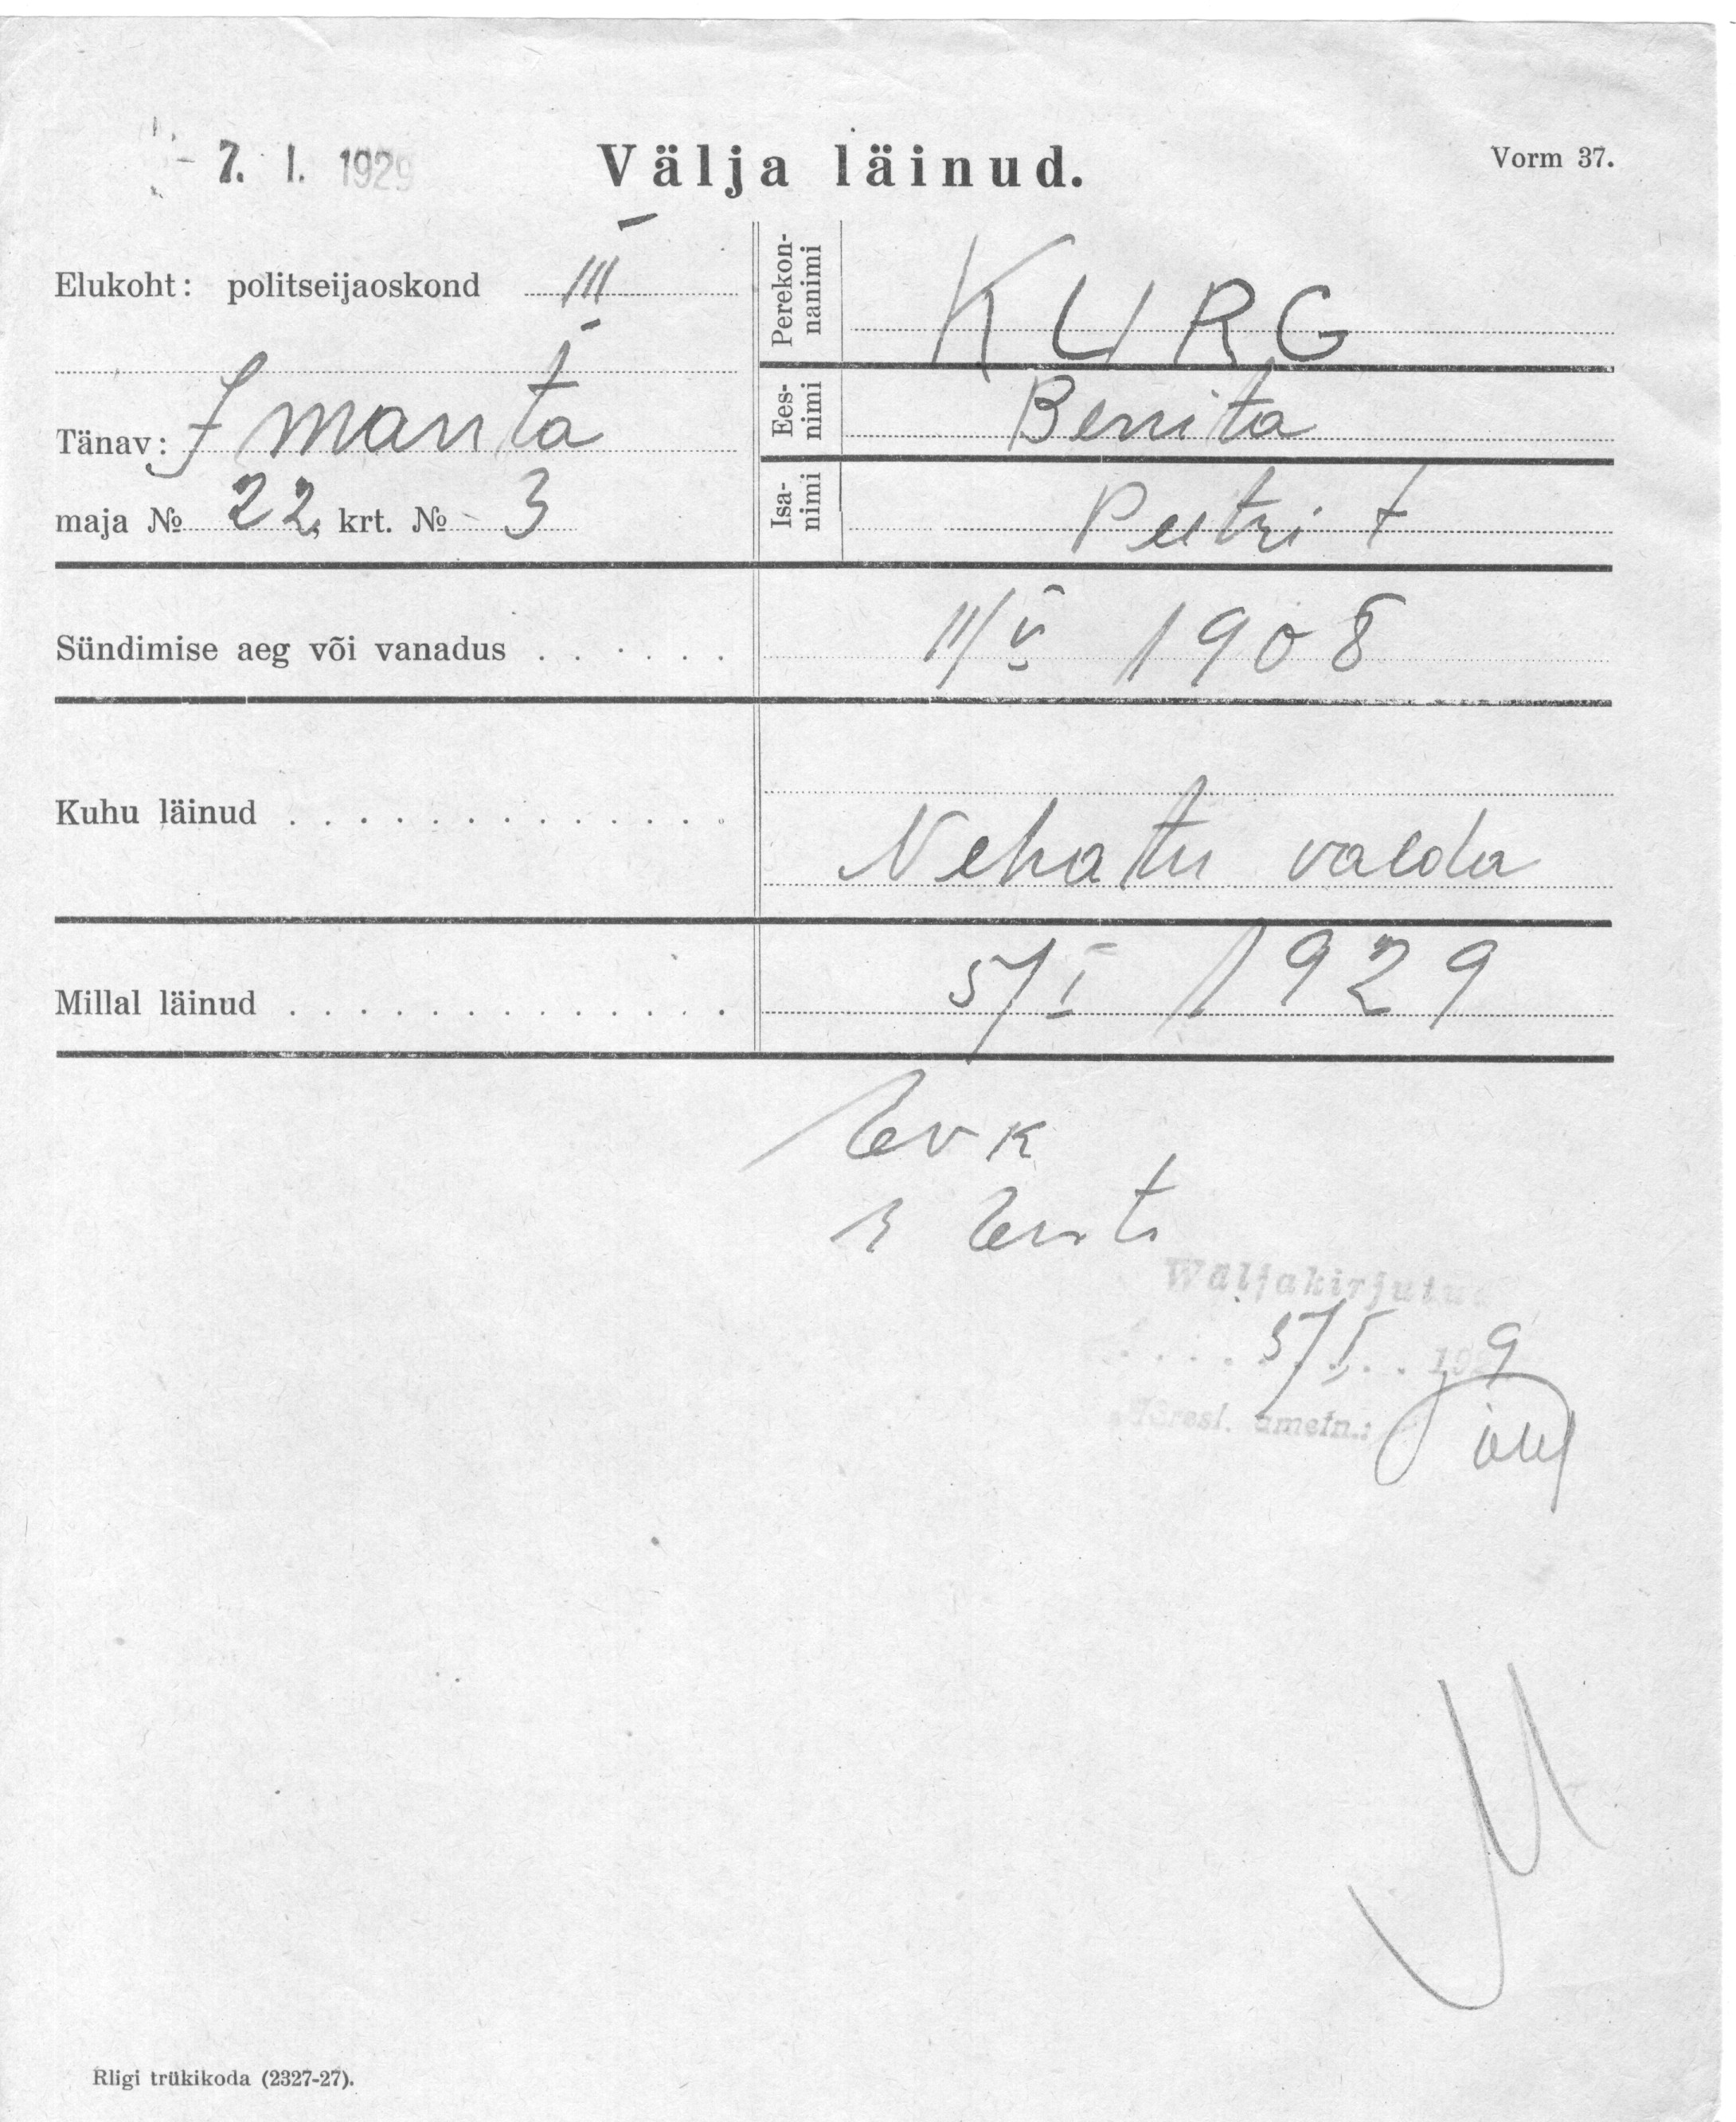 - 7. I. 1929
Välja läinud.
Vorm 37.
Elukoht: politseijaoskond III
Tänav: Imanta
maja № 22, krt. № 3
Perekon-
nanimi
KURG
Ees-
nimi
Benita
Isa-
nimi
Peetri t
Sündimise aeg või vanadus . . . . . .
11/V 1908
Kuhu läinud . . . . . . . . . . . . .
Nehatu valda
Millal läinud . . . . . . . . . . . . .
5/I 1929
Evk
Eesti
Wäljakirjutud
5/I 1929
ametn.:
Rligi trükikoda (2327-27).